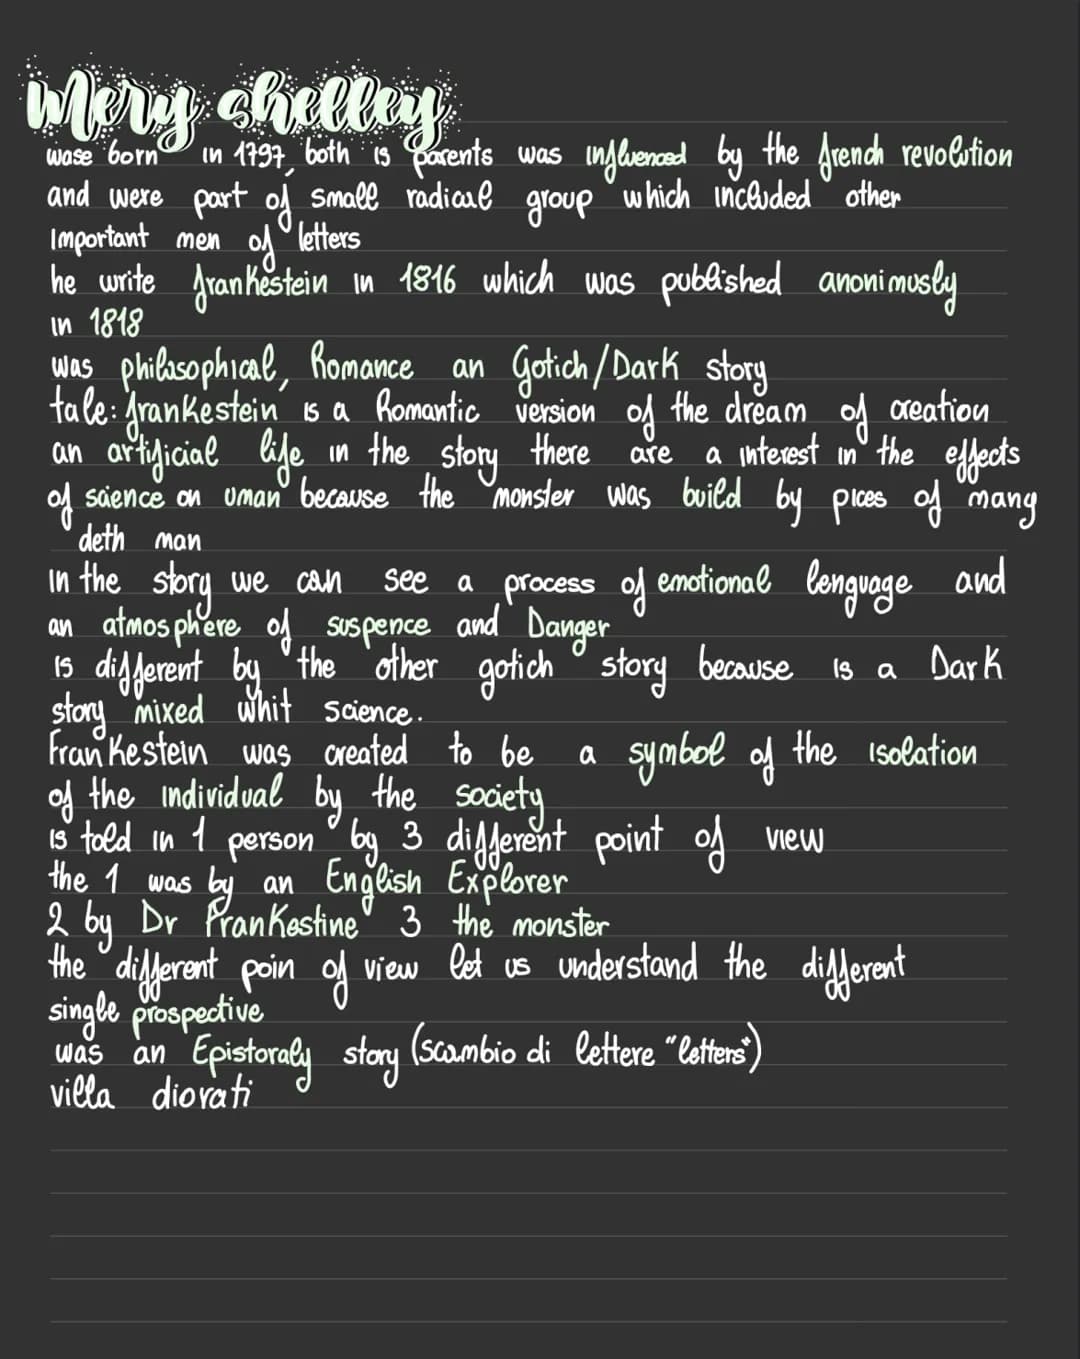 Mery shelley
wase born in 1797, both is parents was influenced by the french revolution
and were part of small radical group which included other
Important men of letters
he write frankestein in 1816 which was published anonimusly
in 1818
was philosophical, Romance an Gotich/Dark story
tale: frankestein is a Romantic version of the dream of creation
an artificial life in the story there are a interest in the effects
of science on uman because the monster was build by pices of many
deth man
in the story we can see a process of emotional lenguage and
an atmosphere of suspence and Danger
is different by the other gotich story because is a Dark
story mixed whit science.
Frankestein was created to be a symbol of the isolation
of the individual by the society
is told in 1 person by 3 different point of view
the 1 was by an English Explorer
2 by Dr Frankestine 3 the monster
the different poin of view let us understand the different
single prospective
was an Epistoraly story (scambio di lettere "letters")
villa diorati